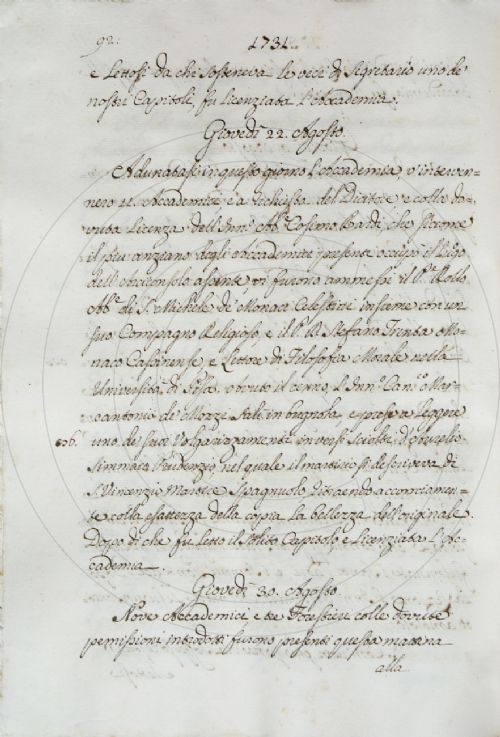 92. 1731.
e Lettosi da chi sosteneva le veci di Segretario uno de
nostri Capitoli, fu licenziata l'Accademia.
Giovedì 22. Agosto.
Adunatasi in questo giorno l'Accademia v'interven-
nero 11. Accademici e a richiesta del Dicitore e colla do-
vuta licenza dell'Inn.º Ab.e Cosimo Baldi che siccome
il più anziano degli Accademici presenti occupò il luogo
dell'Arciconsolo assente vi furono ammessi il P.
Ab.e di S. Michele di Monaci Celestini insieme con un
suo Compagno Religioso, e il P. D. Stefano Trenta Mo-
naco Casinense e Lettore di Filosofia Morale nella
Università di Pisa. avuto il cenno, l'Inn.º Can.co Mar-
cantonio de' Mozzi salì in bugnola, e prese a leggere
606. uno de' suoi Volgarizzamenti in versi sciolti d'
Prudenzio, nel quale il martirio si descriveva di
S. Vincenzio Martire Spagnuolo, facendo acconciamen-
te colla esattezza della copia la bellezza dell'originale.
Dopo di che fu letto il solito Capitolo e licenziata l'Ac-
cademia.
Giovedì 30. Agosto.
Nove Accademici e tre Forestieri colle dovute
permissioni introdotti furono presenti questa mattina
alla